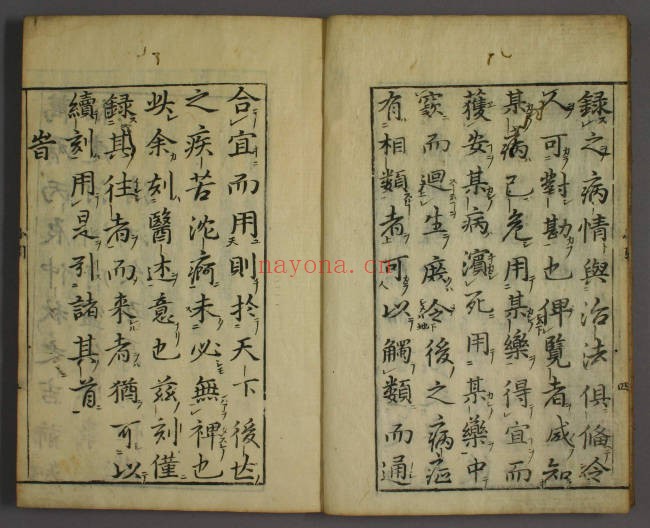 錄之病情與治法俱俻令
人可對勘也俾覽者咸知
某病已危用某藥得宜而
獲安某病瀕死用某藥中
窽而迴生庶令後之病症
有相類者可以觸類而通
合宜而用則於天下後世
之疾苦沈痾未必無裨也
此余刻醫述意也茲刻僅
錄其往者而來者猶可以
續刻用是引諸其首
旹
nayona.cn